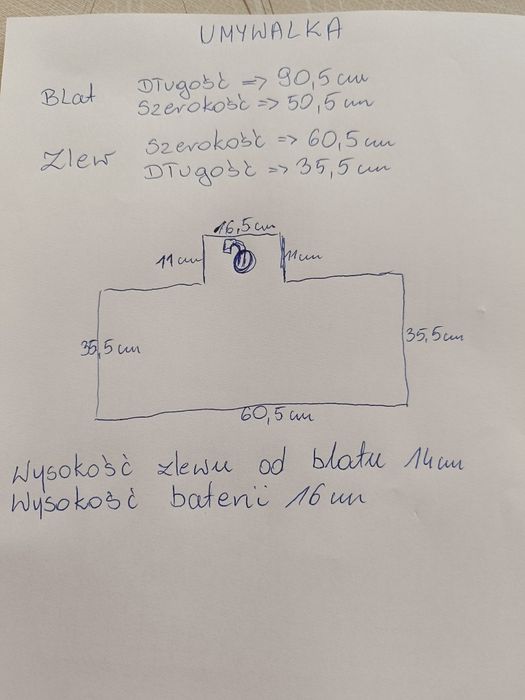 UMYWALKA
Blat
Długość => 90,5 cm
Szerokość => 50,5 cm
Zlew
Szerokość => 60,5 cm
Długość => 35,5 cm
16,5 cm
11 cm
11 cm
35,5 cm
35,5 cm
60,5 cm
Wysokość zlewu od blatu 14 cm
Wysokość baterii 16 cm